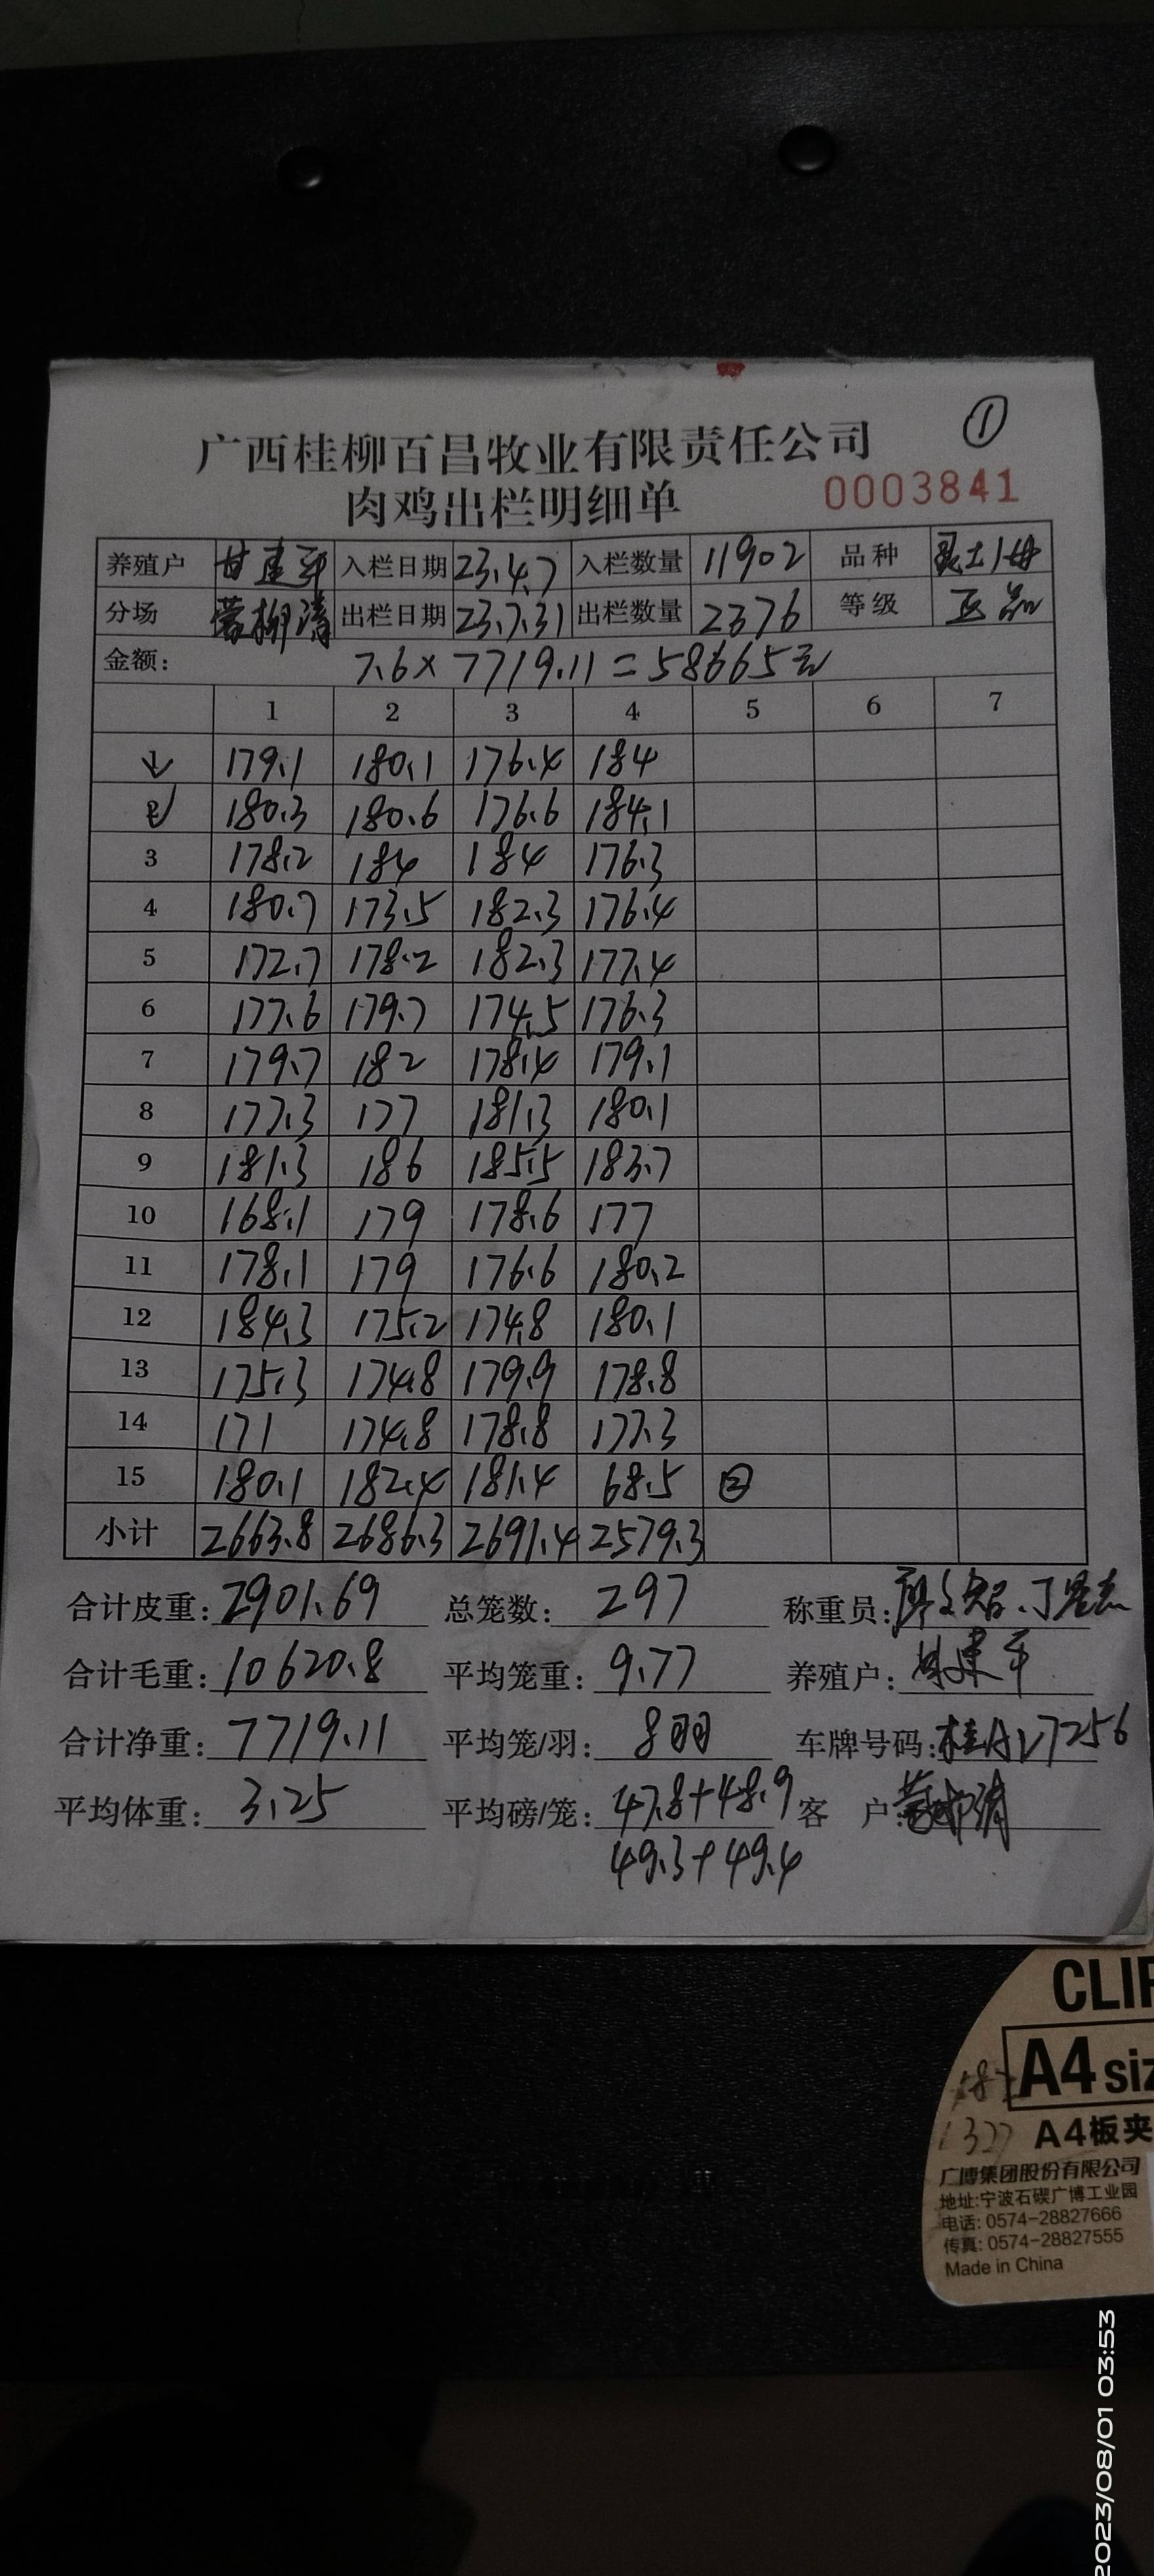 ①
广西桂柳百昌牧业有限责任公司
肉鸡出栏明细单
0003841
养殖户 甘建平 入栏日期 23.4.7 入栏数量 11902 品种
分场 蒙柳清 出栏日期 23.7.31 出栏数量 2376 等级 正品
金额: 7.6×7719.11=58665元
1 2 3 4 5 6 7
1 179.1 180.1 176.4 184
2 180.3 180.6 176.6 184.1
3 178.2 184 184 176.3
4 180.7 173.5 182.3 176.4
5 172.7 178.2 182.3 177.4
6 177.6 179.7 174.5 176.3
7 179.7 182 178.4 179.1
8 177.3 177 181.3 180.1
9 181.3 186 185.5 183.7
10 168.1 179 178.6 177
11 178.1 179 176.6 180.2
12 184.3 175.2 174.8 180.1
13 175.3 174.8 179.9 178.8
14 171 174.8 178.8 177.3
15 180.1 182.4 181.4 68.5 ②
小计 2663.8 2686.3 2691.4 2579.3
合计皮重: 2901.69 总笼数: 297 称重员:
合计毛重: 10620.8 平均笼重: 9.77 养殖户: 甘建平
合计净重: 7719.11 平均笼/羽: 8羽 车牌号码: 桂AV7256
平均体重: 3.25 平均磅/笼: 47.8+48.9 客 户:
49.3+49.4
CLIP
A4 siz
A4板夹
广博集团股份有限公司
地址:宁波石碶广博工业园
电话: 0574-28827666
传真: 0574-28827555
Made in China
2023/08/01 03:53